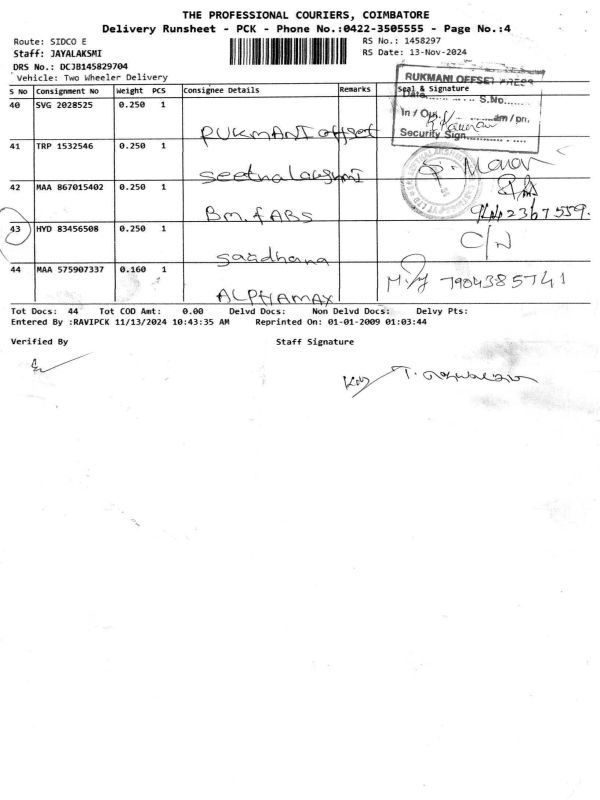 THE PROFESSIONAL COURIERS, COIMBATORE
Delivery Runsheet - PCK - Phone No.:0422-3505555 - Page No.:4
Route: SIDCO E
RS No.: 1458297
Staff: JAYALAKSMI
RS Date: 13-Nov-2024
DRS No.: DCJB145829704
Vehicle: Two Wheeler Delivery
RUKMANI OFFSET PRESS
S No Consignment No Weight PCS Consignee Details Remarks Seal & Signature
Date S.No.
40 SVG 2028525 0.250 1
In / Out am / pm.
RUKMANI offset
Security Sign.
41 TRP 1532546 0.250 1
seethalakshmi
42 MAA 867015402 0.250 1
Bm. fABS
43 HYD 83456508 0.250 1
C/N
saadhana
44 MAA 575907337 0.160 1
7904385741
ALPHAMAX
Tot Docs: 44 Tot COD Amt: 0.00 Delvd Docs: Non Delvd Docs: Delvy Pts:
Entered By :RAVIPCK 11/13/2024 10:43:35 AM Reprinted On: 01-01-2009 01:03:44
Verified By Staff Signature